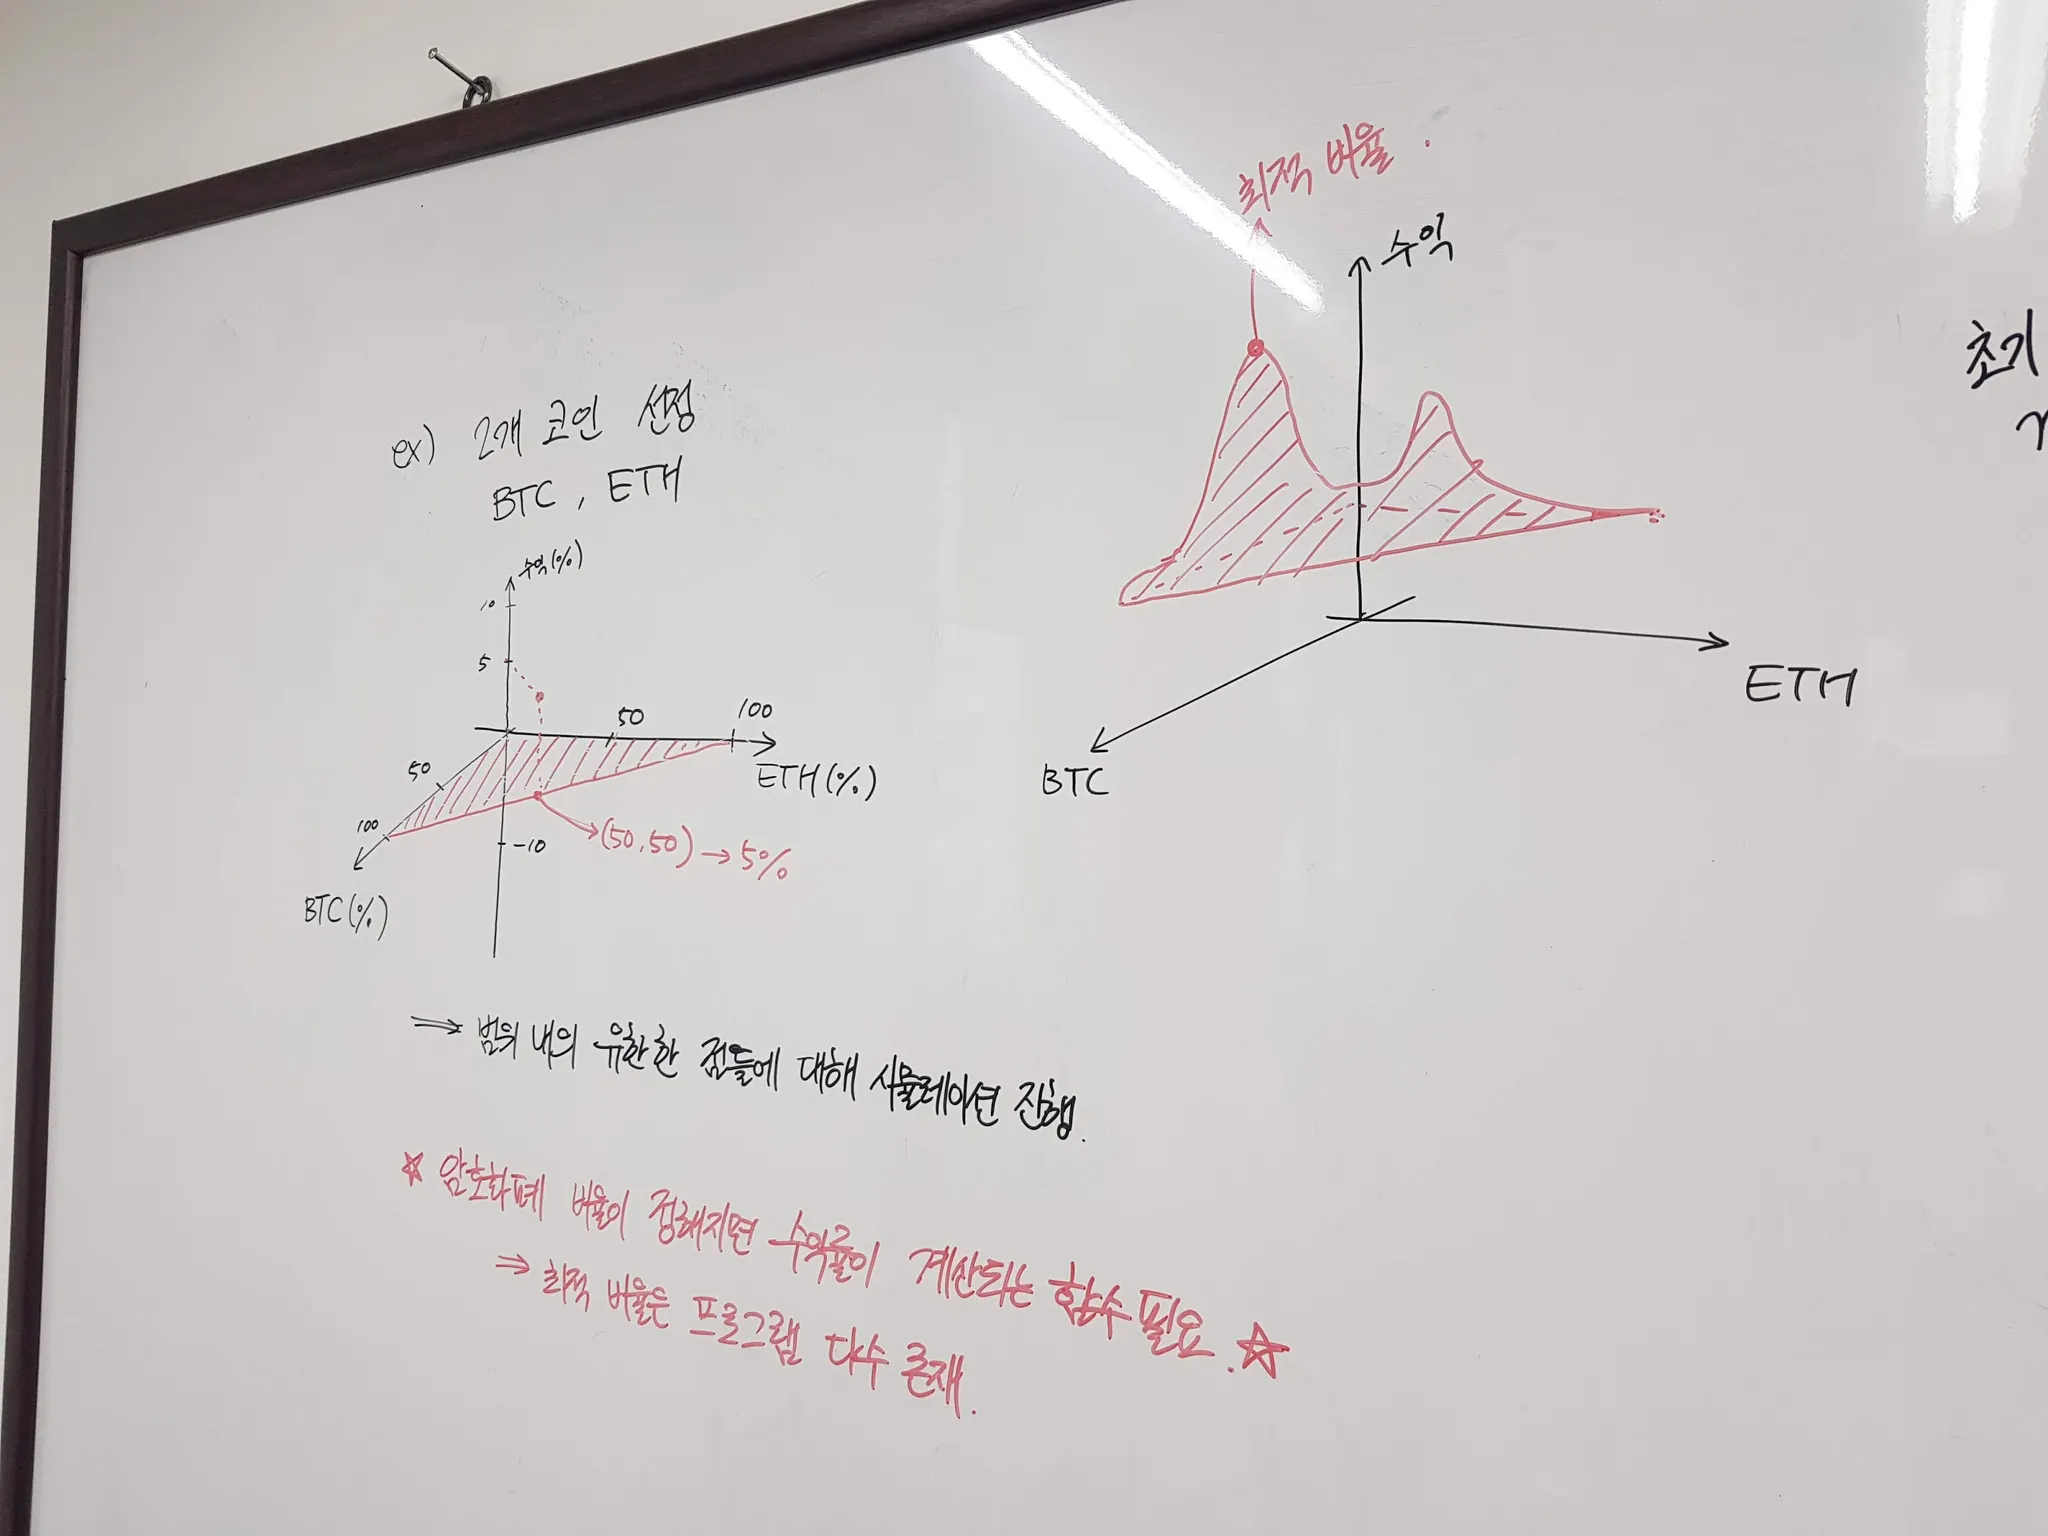 ex) 2개 코인 선정
BTC, ETH
수익(%)
10
5
50
100
ETH(%)
50
100
BTC(%)
-10
(50,50) → 5%
⇒ 범위 내의 유한한 점들에 대해 시뮬레이션 진행.
☆ 암호화폐 비율이 정해지면 수익률이 계산되는 함수 필요. ☆
⇒ 최적 비율은 프로그램 다수 존재.
최적 비율.
수익
ETH
BTC
초기